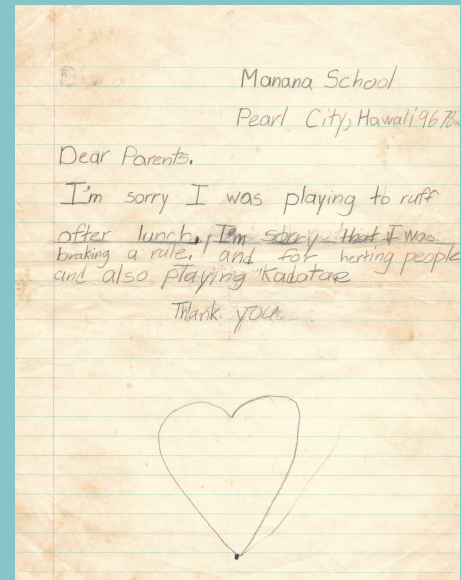 Manana School
Pearl City, Hawaii 96782
Dear Parents.
I'm sorry I was playing to ruff
after lunch, I'm sorry that I was
braking a rule, and for herting people
and also playing "Kadotae
Thank you.